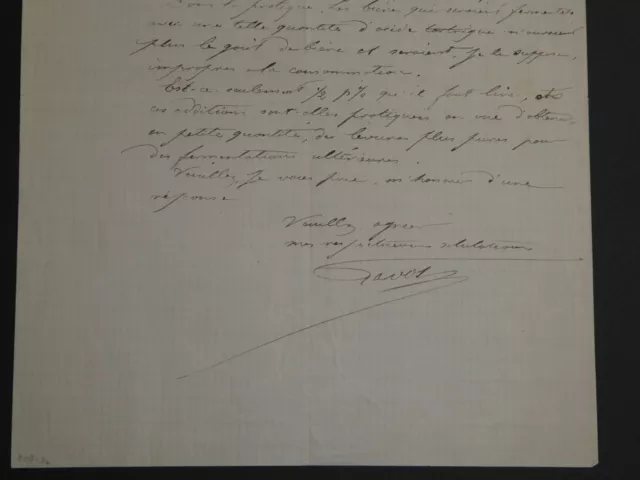 Dans la pratique, les bières qui seraient fermentées
avec une telle quantité d'acide tartrique n'auraient
plus le goût de bière et seraient, je le suppose,
impropres à la consommation.
Est-ce seulement ½ p % qu'il faut lire, et
ces additions sont elles pratiquées en vue d'obtenir,
en petite quantité, des levures plus pures pour
des fermentations ultérieures.
Veuillez, je vous prie, m'honorer d'une
réponse
Veuillez agréer
mes respectueuses salutations